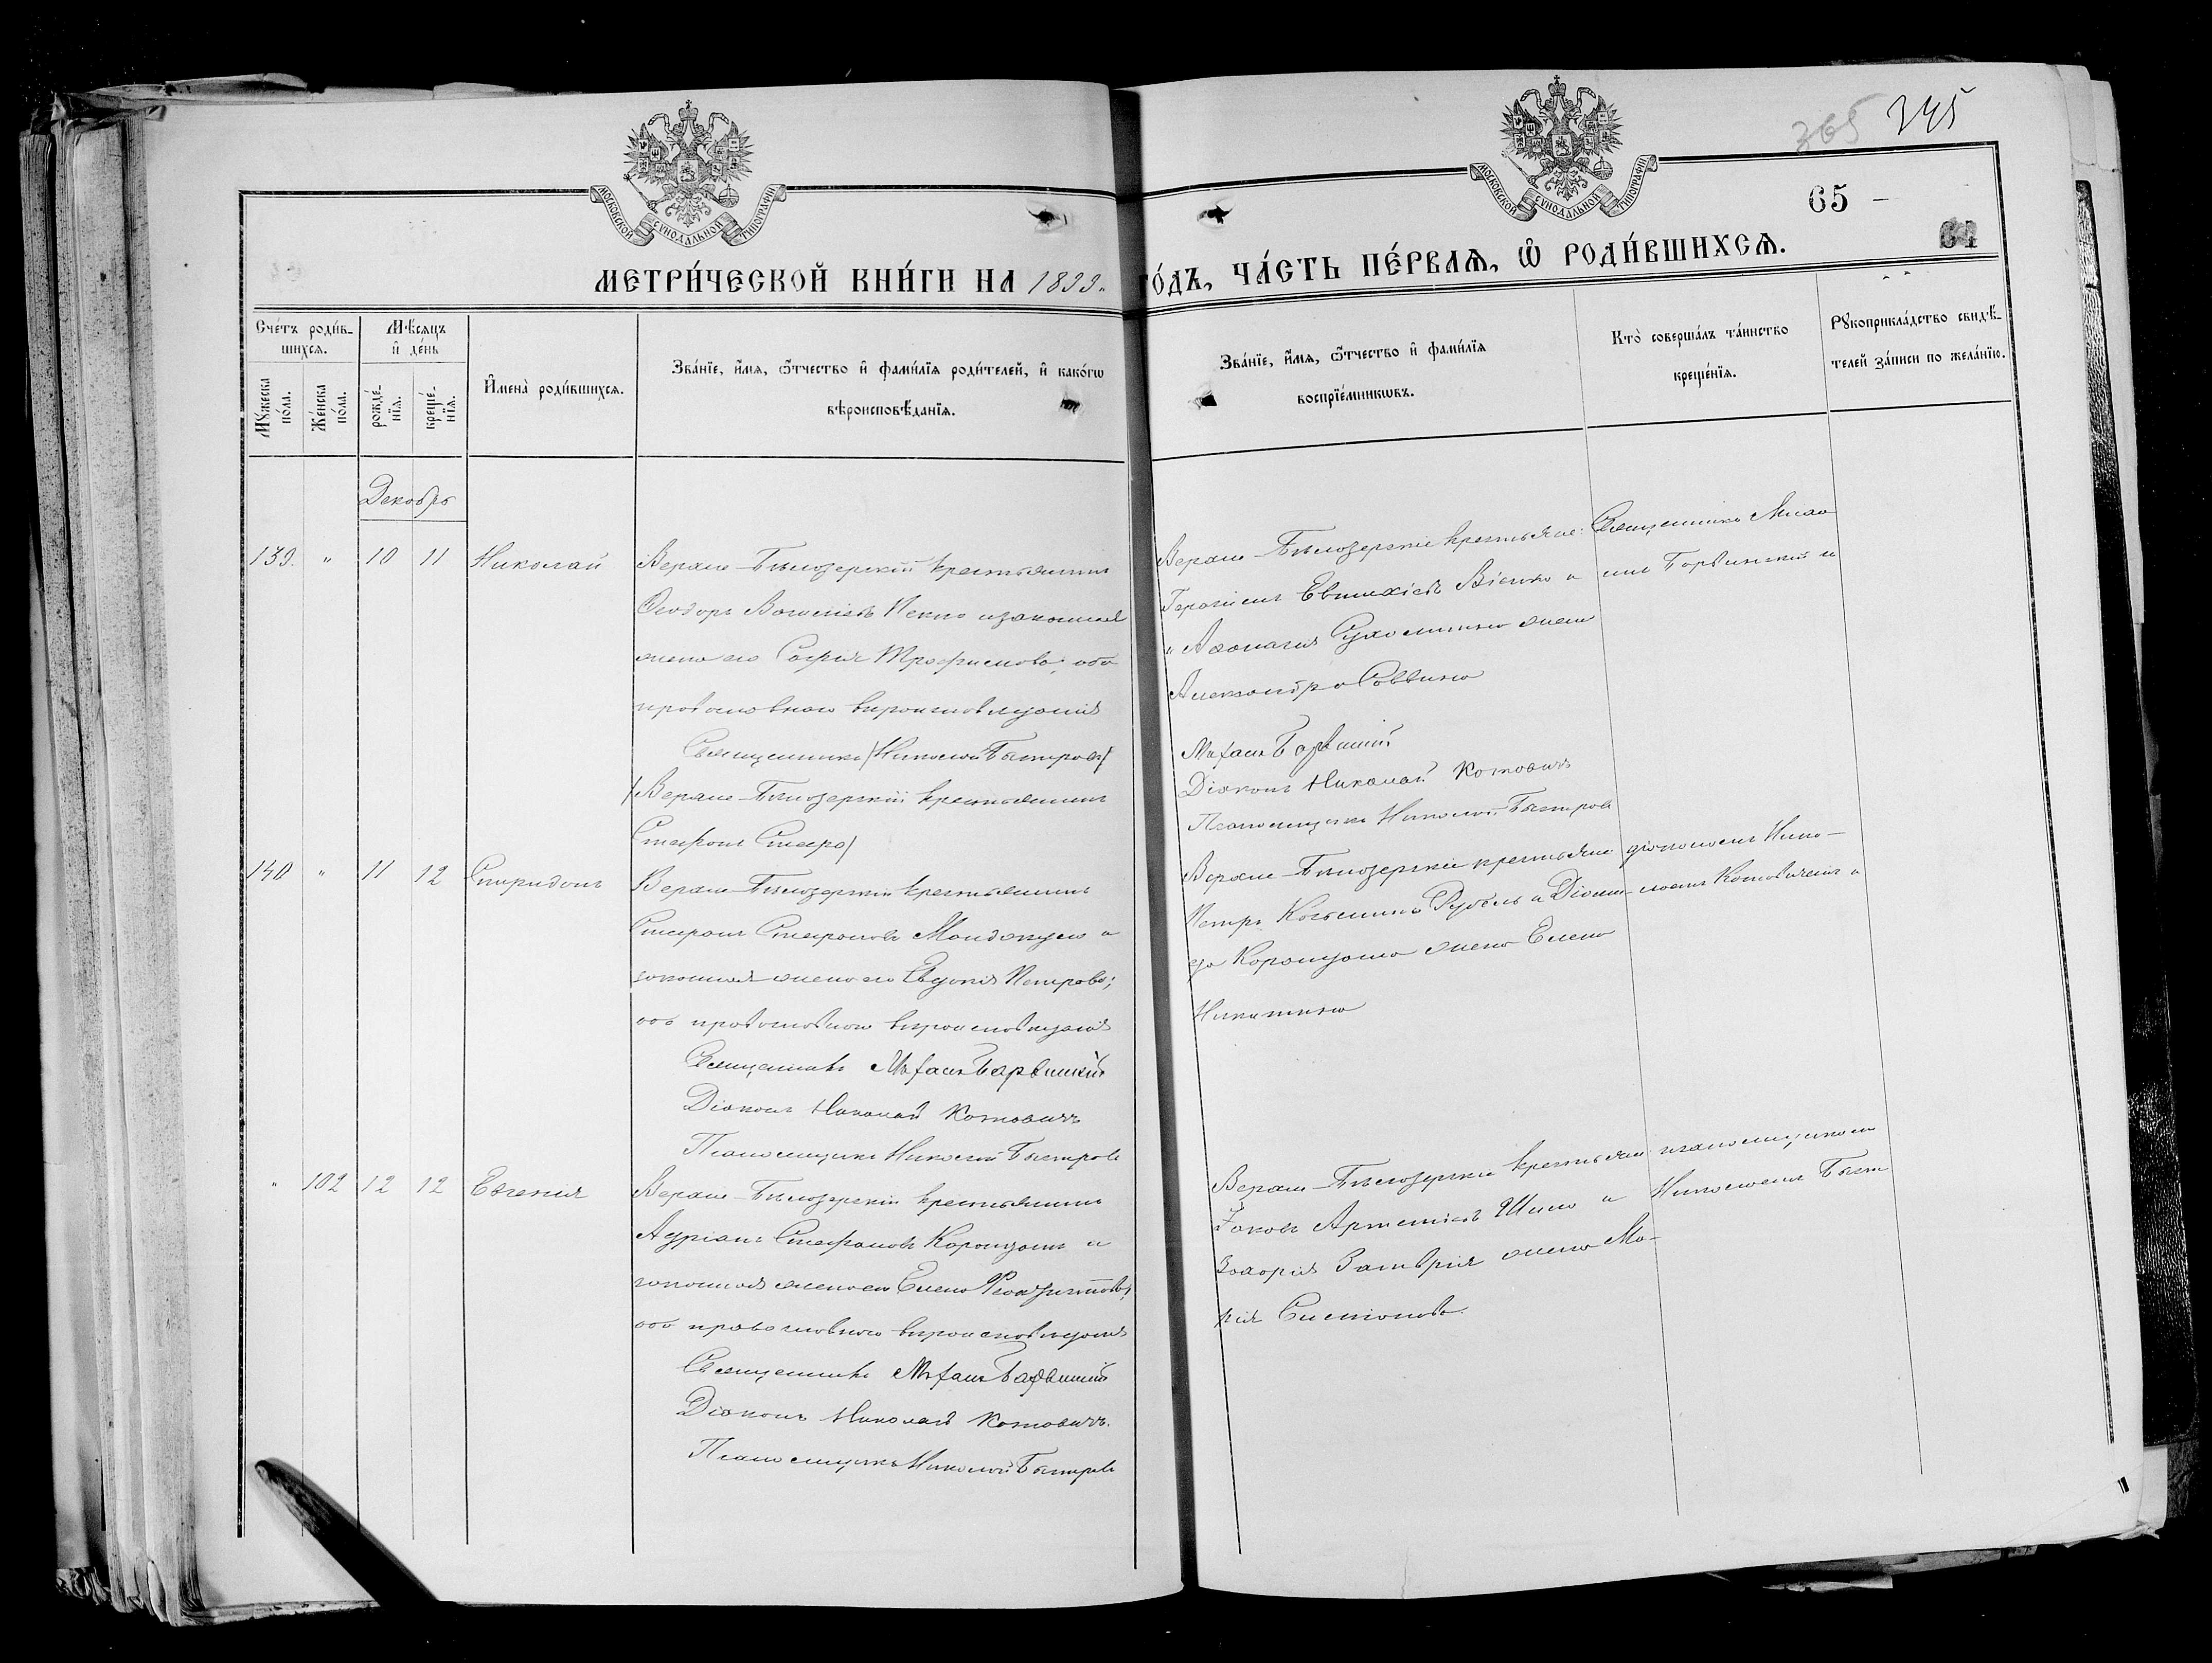 365 345
65 -
64
МОСКОВСКОЙ СѴНОДАЛЬНОЙ ТИПОГРАФІИ
МОСКОВСКОЙ СѴНОДАЛЬНОЙ ТИПОГРАФІИ
МЕТРИ́ЧЕСКОЙ КНИ́ГИ НА 1899. ГО́ДЪ, ЧА́СТЬ ПЕ́РВАѦ, Ѡ҆ РОДИ́ВШИХСѦ.
Сче́тъ роди́в-
шихсѧ.
Мꙋ́жеска по́ла.
Же́нска по́ла.
Мѣ́сѧцъ и҆ де́нь
рожде́-нїѧ.
креще́-нїѧ.
И҆мена̀ роди́вшихсѧ.
Зва́нїе, и҆́мѧ, ѻ҆́тчество и҆ фамѝлїѧ роди́телей, и҆ како́гѡ
вѣроисповѣ́данїѧ.
Зва́нїе, и҆́мѧ, ѻ҆́тчество и҆ фами́лїѧ
воспрїе́мникѡвъ.
Кто̀ соверша́лъ та́инство
креще́нїѧ.
Рꙋкоприкла́дство свидѣ́-
телей за́писи по жела́нїю.
Декабрь
139. " 10 11 Николай
Верхне-Бѣлозерскій крестьянинъ
Ѳеодоръ Пекно и законная
жена его Софія Трофимова; оба
православнаго вѣроисповѣданія
Священникъ /Николай Быстровъ/
/Верхне-Бѣлозерскій крестьянинъ
Стефанъ
Верхне-Бѣлозерскіе крестьяне:
Герасимъ Евтихіевъ и
Аѳанасія жена
Александра Саввина
Михаилъ Барвинскій
Діаконъ Николай Котовичъ
Псаломщикъ Николай Быстровъ
Священникъ Миха-
илъ Барвинскій и
140 " 11 12 Спиридонъ
Верхне-Бѣлозерскій крестьянинъ
Стефанъ Стефановъ и
законная жена его Евдокія Петрова;
оба православнаго вѣроисповѣданія
Священникъ Михаилъ Барвинскій
Діаконъ Николай Котовичъ
Псаломщикъ Николай Быстровъ
Верхне-Бѣлозерскіе крестьяне
Петръ Косьминъ и Діоми-
да жена Елена
Никитина
діакономъ Нико-
лаемъ Котовичемъ и
" 102 12 12 Евгенія
Верхне-Бѣлозерскій крестьянинъ
Адріанъ Стефановъ и
законная жена его Елена
оба православнаго вѣроисповѣданія
Священникъ Михаилъ Барвинскій
Діаконъ Николай Котовичъ.
Псаломщикъ Николай Быстровъ
Верхне-Бѣлозерскіе крестьяне
Іаковъ Артеміевъ Шило и
Захарія жена Ма-
рія Симонова.
псаломщикомъ
Николаемъ Быст